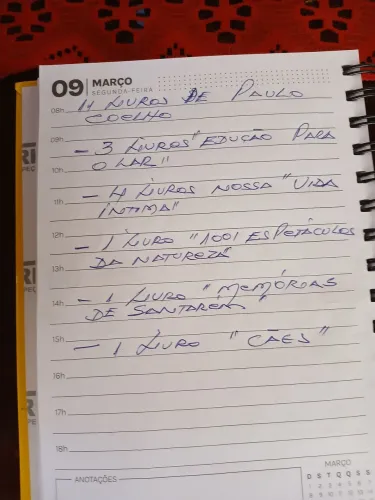 09 MARÇO
SEGUNDA-FEIRA
08h
11 LIVROS DE PAULO
COELHO
09h
- 3 LIVROS "EDUÇÃO PARA
10h
O LAR"
- 4 LIVROS NOSSA "VIDA
11h
ÍNTIMA"
12h
- 1 LIVRO "1001 ESPETÁCULOS
DA NATUREZA"
13h
- 1 LIVRO "MEMÓRIAS
14h
DE SANTARÉM"
15h
- 1 LIVRO "CÃES"
16h
17h
18h
ANOTAÇÕES
MARÇO
D S T Q Q S S